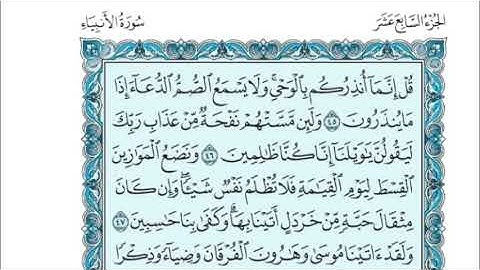 الجزء السابع عشر
سورة الأنبياء
قُلْ إِنَّمَآ أُنذِرُكُم بِٱلْوَحْىِ ۚ وَلَا يَسْمَعُ ٱلصُّمُّ ٱلدُّعَآءَ إِذَا
مَا يُنذَرُونَ ٤٥ وَلَئِن مَّسَّتْهُمْ نَفْحَةٌ مِّنْ عَذَابِ رَبِّكَ
لَيَقُولُنَّ يَٰوَيْلَنَآ إِنَّا كُنَّا ظَٰلِمِينَ ٤٦ وَنَضَعُ ٱلْمَوَٰزِينَ
ٱلْقِسْطَ لِيَوْمِ ٱلْقِيَٰمَةِ فَلَا تُظْلَمُ نَفْسٌ شَيْـًٔا ۖ وَإِن كَانَ
مِثْقَالَ حَبَّةٍ مِّنْ خَرْدَلٍ أَتَيْنَا بِهَا ۗ وَكَفَىٰ بِنَا حَٰسِبِينَ ٤٧
وَلَقَدْ ءَاتَيْنَا مُوسَىٰ وَهَٰرُونَ ٱلْفُرْقَانَ وَضِيَآءً وَذِكْرًا